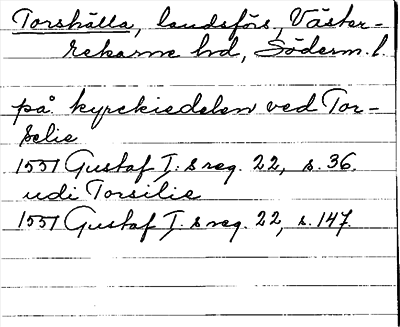 Torshälla, landsförs, Väster-
rekarne hd, Söderm. l.
på kyrckiedelen ved Tor-
selie
1551 Gustaf I:s reg. 22, s. 36.
udi Torsilie
1551 Gustaf I:s reg. 22, s. 147.